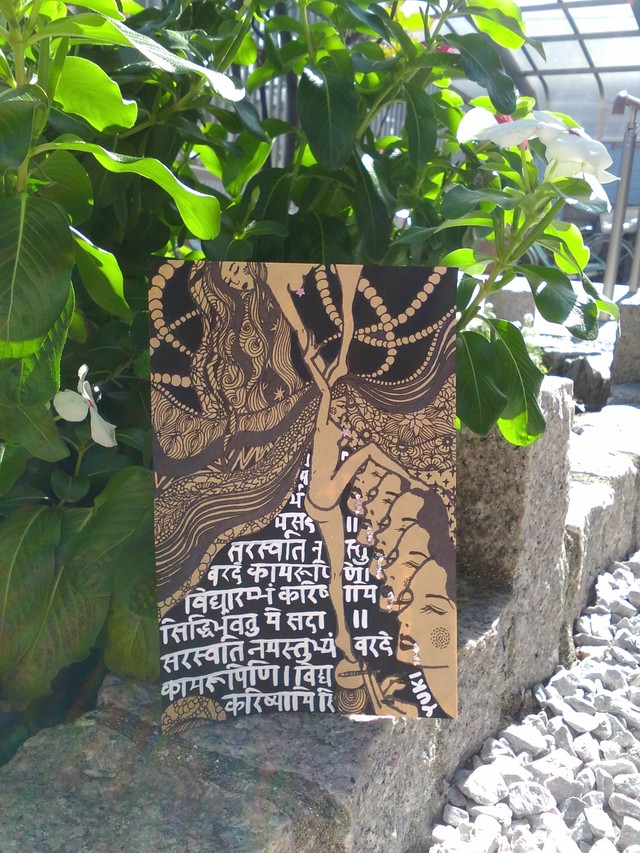 यसद ॥
सरस्वति न स्तु
वरदे कामरूपि णि।
विद्यारम्भं करिष् यामि
सिद्धिर्भवतु मे सदा ॥
सरस्वति नमस्तुभ्यं वरदे
कामरूपिणि। विद्य
करिष्यामि रि
YUKI